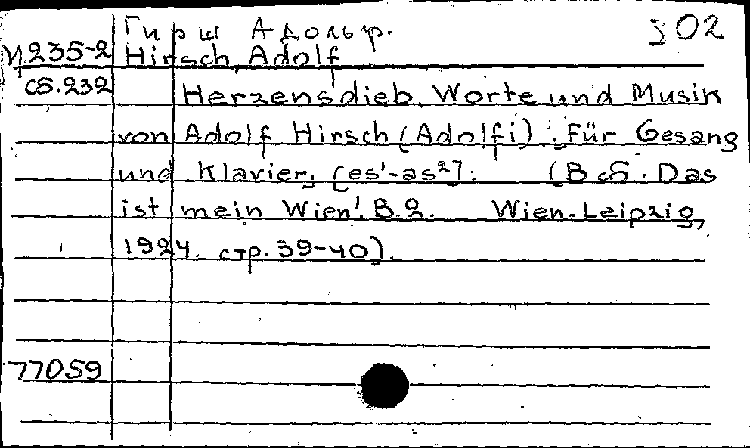 Гирш Адольф. 302
И 235-2 Hirsch, Adolf
сб.232 Herzensdieb. Worte und Musik
von Adolf Hirsch (Adolfi). Für Gesang
und Klavier, [es'-as²]. (В сб. Das
ist mein Wien! B.2. Wien-Leipzig,
1924. стр. 39-40).
77059